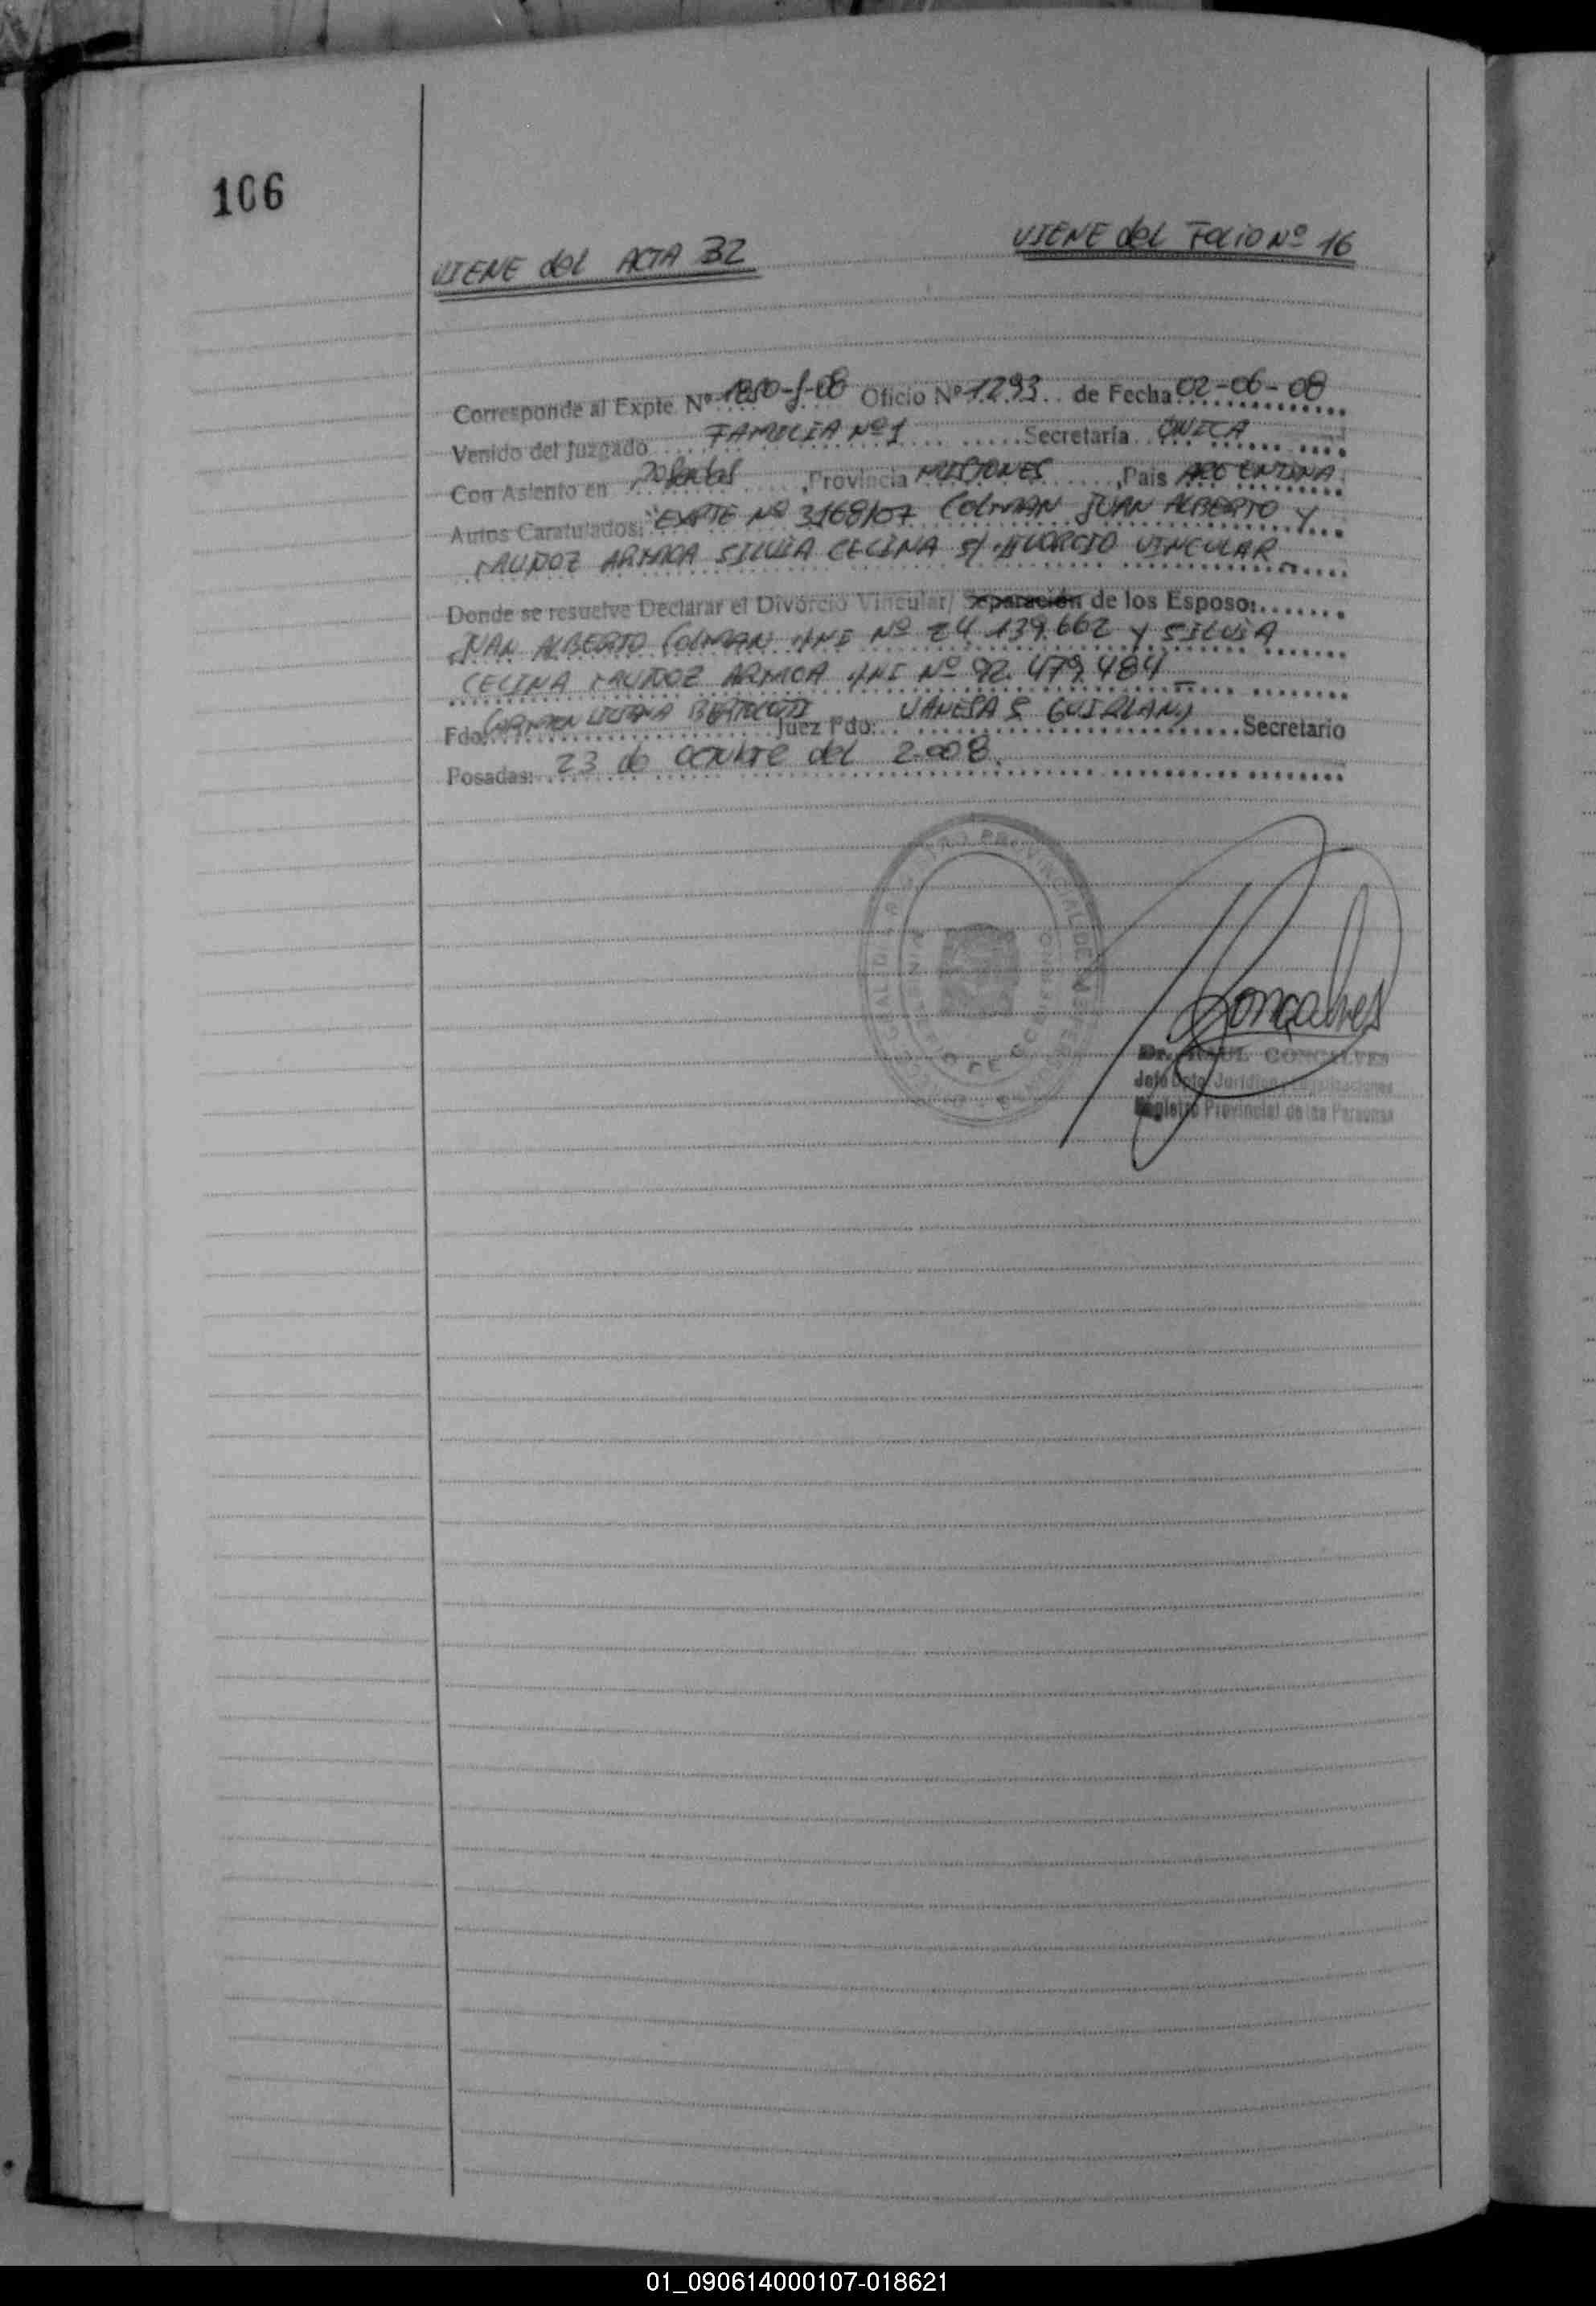 106
VIENE del ACTA 32
VIENE del FOLIO Nº 16
Corresponde al Expte. Nº 1850-J-08 Oficio Nº 1293 de Fecha 02-06-08
Venido del Juzgado FAMILIA Nº 1 Secretaría ÚNICA
Con Asiento en Posadas, Provincia MISIONES, País ARGENTINA
Autos Caratulados: "EXPTE Nº 3168/07 COLMAN JUAN ALBERTO Y
MUÑOZ ARMOA SILVIA CELINA S/ DIVORCIO VINCULAR
Donde se resuelve Declarar el Divorcio Vincular/ Separación de los Esposo:
JUAN ALBERTO COLMAN DNI Nº 24.139.662 Y SILVIA
CELINA MUÑOZ ARMOA DNI Nº 92.479.484
Fdo: CARMEN LILIANA Juez Fdo: VANESA S. Secretario
Posadas: 23 de OCTUBRE del 2.008.
Gonçalves
Dr. RAUL GONÇALVES
Jefe Dpto. Jurídico y Legalizaciones
Registro Provincial de las Personas
01_090614000107-018621